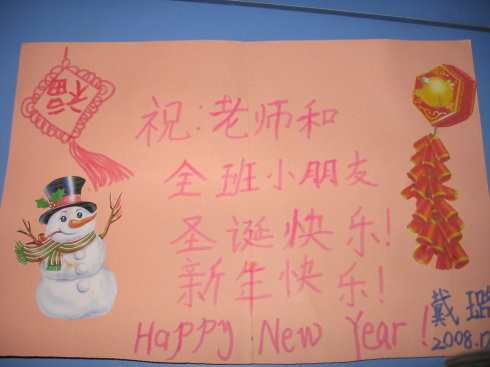 福
祝:老师和
全班小朋友
圣诞快乐!
新年快乐!
Happy New Year!
戴
2008.